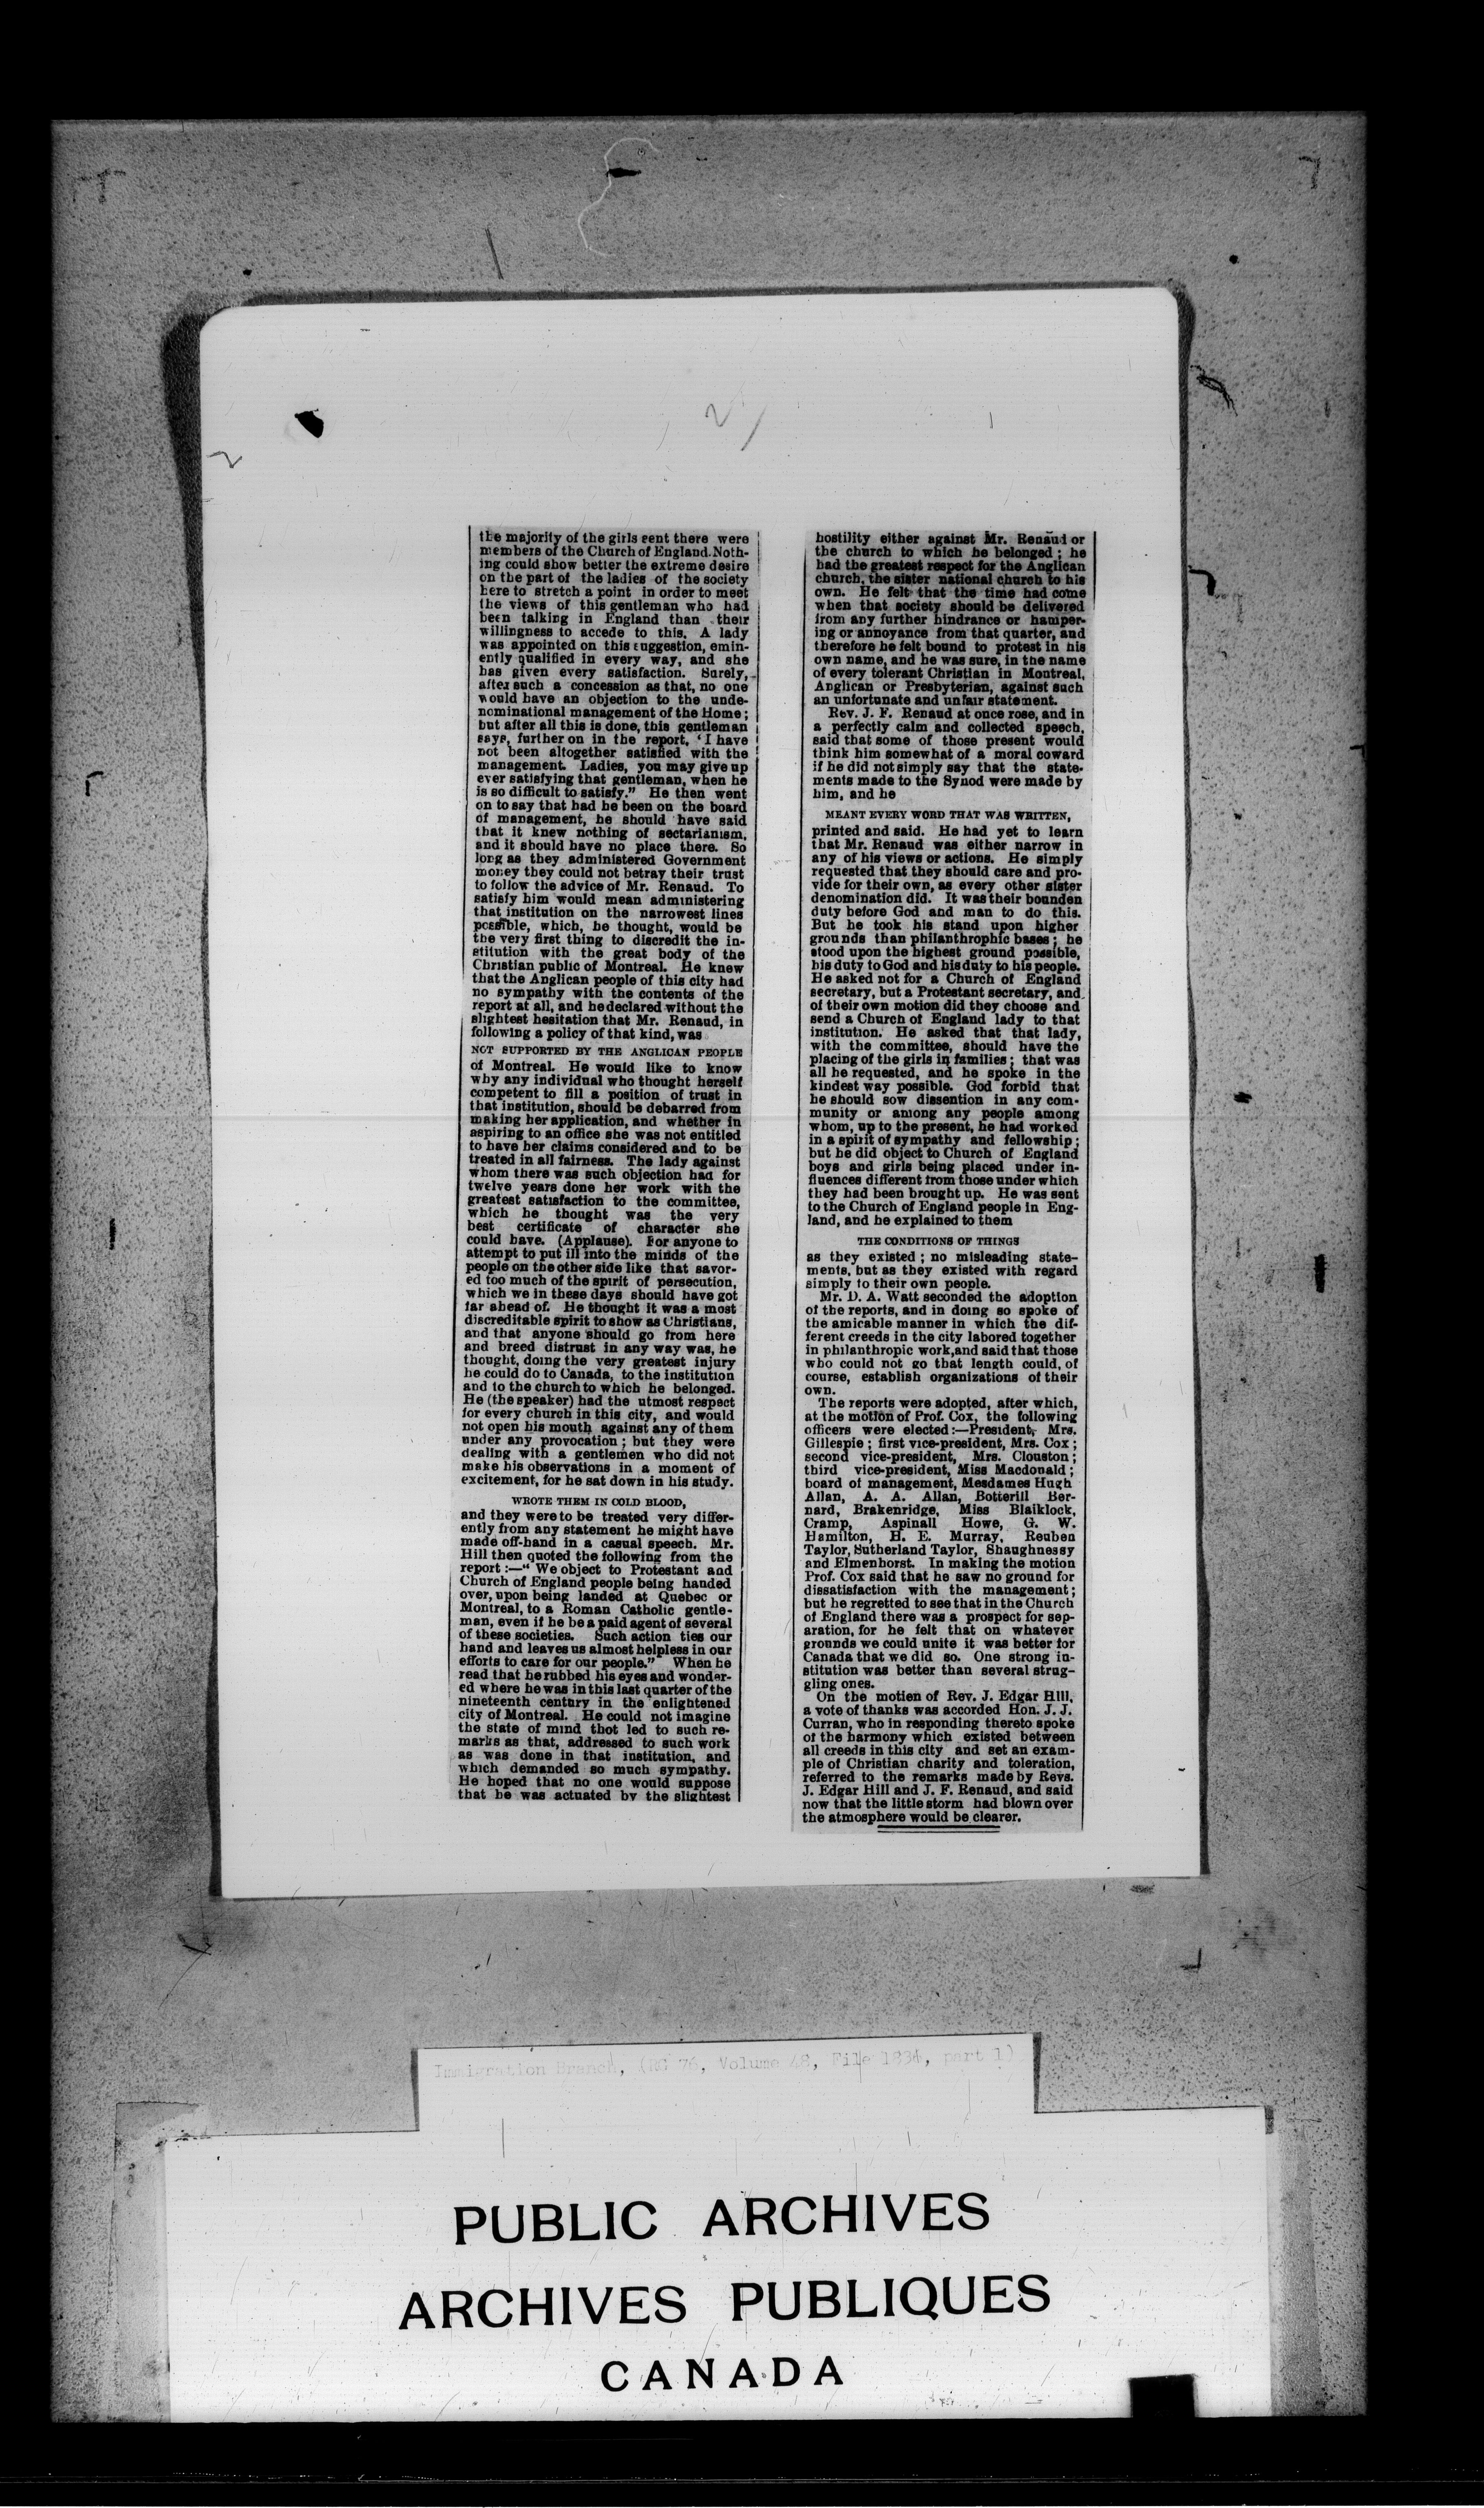 2
2
the majority of the girls sent there were
members of the Church of England. Noth-
ing could show better the extreme desire
on the part of the ladies of the society
here to stretch a point in order to meet
the views of this gentleman who had
been talking in England than their
willingness to accede to this. A lady
was appointed on this suggestion, emin-
ently qualified in every way, and she
has given every satisfaction. Surely,
after such a concession as that, no one
would have an objection to the unde-
nominational management of the Home;
but after all this is done, this gentleman
says, further on in the report, 'I have
not been altogether satisfied with the
management. Ladies, you may give up
ever satisfying that gentleman, when he
is so difficult to satisfy." He then went
on to say that had he been on the board
of management, he should have said
that it knew nothing of sectarianism,
and it should have no place there. So
long as they administered Government
money they could not betray their trust
to follow the advice of Mr. Renaud. To
satisfy him would mean administering
that institution on the narrowest lines
possible, which, he thought, would be
the very first thing to discredit the in-
stitution with the great body of the
Christian public of Montreal. He knew
that the Anglican people of this city had
no sympathy with the contents of the
report at all, and he declared without the
slightest hesitation that Mr. Renaud, in
following a policy of that kind, was
NOT SUPPORTED BY THE ANGLICAN PEOPLE
of Montreal. He would like to know
why any individual who thought herself
competent to fill a position of trust in
that institution, should be debarred from
making her application, and whether in
aspiring to an office she was not entitled
to have her claims considered and to be
treated in all fairness. The lady against
whom there was such objection had for
twelve years done her work with the
greatest satisfaction to the committee,
which he thought was the very
best certificate of character she
could have. (Applause). For anyone to
attempt to put ill into the minds of the
people on the other side like that savor-
ed too much of the spirit of persecution,
which we in these days should have got
far ahead of. He thought it was a most
discreditable spirit to show as Christians,
and that anyone should go from here
and breed distrust in any way was, he
thought, doing the very greatest injury
he could do to Canada, to the institution
and to the church to which he belonged.
He (the speaker) had the utmost respect
for every church in this city, and would
not open his mouth against any of them
under any provocation; but they were
dealing with a gentlemen who did not
make his observations in a moment of
excitement, for he sat down in his study.
WROTE THEM IN COLD BLOOD,
and they were to be treated very differ-
ently from any statement he might have
made off-hand in a casual speech. Mr.
Hill then quoted the following from the
report:—"We object to Protestant and
Church of England people being handed
over, upon being landed at Quebec or
Montreal, to a Roman Catholic gentle-
man, even if he be a paid agent of several
of these societies. Such action ties our
hand and leaves us almost helpless in our
efforts to care for our people." When he
read that he rubbed his eyes and wonder-
ed where he was in this last quarter of the
nineteenth century in the enlightened
city of Montreal. He could not imagine
the state of mind thot led to such re-
marks as that, addressed to such work
as was done in that institution, and
which demanded so much sympathy.
He hoped that no one would suppose
that he was actuated by the slightest
hostility either against Mr. Renaud or
the church to which he belonged; he
had the greatest respect for the Anglican
church, the sister national church to his
own. He felt that the time had come
when that society should be delivered
from any further hindrance or hamper-
ing or annoyance from that quarter, and
therefore he felt bound to protest in his
own name, and he was sure, in the name
of every tolerant Christian in Montreal,
Anglican or Presbyterian, against such
an unfortunate and unfair statement.
Rev. J. F. Renaud at once rose, and in
a perfectly calm and collected speech,
said that some of those present would
think him somewhat of a moral coward
if he did not simply say that the state-
ments made to the Synod were made by
him, and he
MEANT EVERY WORD THAT WAS WRITTEN,
printed and said. He had yet to learn
that Mr. Renaud was either narrow in
any of his views or actions. He simply
requested that they should care and pro-
vide for their own, as every other sister
denomination did. It was their bounden
duty before God and man to do this.
But he took his stand upon higher
grounds than philanthrophic bases; he
stood upon the highest ground possible,
his duty to God and his duty to his people.
He asked not for a Church of England
secretary, but a Protestant secretary, and
of their own motion did they choose and
send a Church of England lady to that
institution. He asked that that lady,
with the committee, should have the
placing of the girls in families; that was
all he requested, and he spoke in the
kindest way possible. God forbid that
he should sow dissention in any com-
munity or among any people among
whom, up to the present, he had worked
in a spirit of sympathy and fellowship;
but he did object to Church of England
boys and girls being placed under in-
fluences different from those under which
they had been brought up. He was sent
to the Church of England people in Eng-
land, and he explained to them
THE CONDITIONS OF THINGS
as they existed; no misleading state-
ments, but as they existed with regard
simply to their own people.
Mr. D. A. Watt seconded the adoption
of the reports, and in doing so spoke of
the amicable manner in which the dif-
ferent creeds in the city labored together
in philanthropic work, and said that those
who could not go that length could, of
course, establish organizations of their
own.
The reports were adopted, after which,
at the motion of Prof. Cox, the following
officers were elected:—President, Mrs.
Gillespie; first vice-president, Mrs. Cox;
second vice-president, Mrs. Clouston;
third vice-president, Miss Macdonald;
board of management, Mesdames Hugh
Allan, A. A. Allan, Botterill Ber-
nard, Brakenridge, Miss Blaiklock,
Cramp, Aspinall Howe, G. W.
Hamilton, H. E. Murray, Reuben
Taylor, Sutherland Taylor, Shaughnessy
and Elmenhorst. In making the motion
Prof. Cox said that he saw no ground for
dissatisfaction with the management;
but he regretted to see that in the Church
of England there was a prospect for sep-
aration, for he felt that on whatever
grounds we could unite it was better for
Canada that we did so. One strong in-
stitution was better than several strug-
gling ones.
On the motien of Rev. J. Edgar Hill,
a vote of thanks was accorded Hon. J. J.
Curran, who in responding thereto spoke
of the harmony which existed between
all creeds in this city and set an exam-
ple of Christian charity and toleration,
referred to the remarks made by Revs.
J. Edgar Hill and J. F. Renaud, and said
now that the little storm had blown over
the atmosphere would be clearer.
Immigration Branch, (RG 76, Volume 48, File 1834, part 1)
PUBLIC ARCHIVES
ARCHIVES PUBLIQUES
CANADA